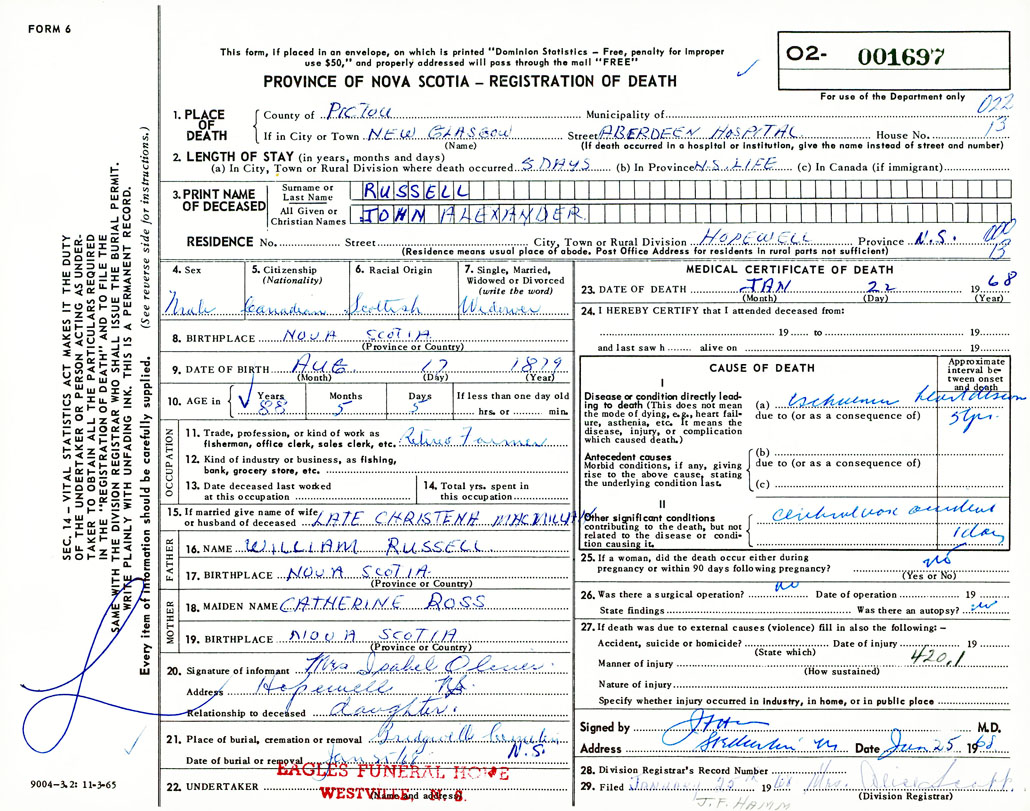 FORM 6
This form, if placed in an envelope, on which is printed "Dominion Statistics – Free, penalty for improper
use $50," and properly addressed will pass through the mail "FREE"
PROVINCE OF NOVA SCOTIA – REGISTRATION OF DEATH
O2- 001697
For use of the Department only
022
13
1. PLACE OF DEATH
County of PICTOU Municipality of
If in City or Town NEW GLASGOW Street ABERDEEN HOSPITAL House No.
(Name) (If death occurred in a hospital or institution, give the name instead of street and number)
2. LENGTH OF STAY (in years, months and days)
(a) In City, Town or Rural Division where death occurred 5 DAYS (b) In Province N.S. LIFE (c) In Canada (if immigrant)
3. PRINT NAME OF DECEASED
Surname or Last Name RUSSELL
All Given or Christian Names JOHN ALEXANDER
RESIDENCE No. Street City, Town or Rural Division HOPEWELL Province N.S.
(Residence means usual place of abode. Post Office Address for residents in rural parts not sufficient)
13
4. Sex 5. Citizenship (Nationality) 6. Racial Origin 7. Single, Married, Widowed or Divorced (write the word)
Male Canadian Scottish Widower
8. BIRTHPLACE NOVA SCOTIA
(Province or Country)
9. DATE OF BIRTH AUG 17 1879
(Month) (Day) (Year)
10. AGE in Years Months Days If less than one day old
88 5 5 hrs. or min.
OCCUPATION
11. Trade, profession, or kind of work as Retired Farmer
fisherman, office clerk, sales clerk, etc.
12. Kind of industry or business, as fishing,
bank, grocery store, etc.
13. Date deceased last worked at this occupation
14. Total yrs. spent in this occupation
15. If married give name of wife or husband of deceased LATE CHRISTENA MACMILLAN
FATHER
16. NAME WILLIAM RUSSELL
17. BIRTHPLACE NOVA SCOTIA
(Province or Country)
MOTHER
18. MAIDEN NAME CATHERINE ROSS
19. BIRTHPLACE NOVA SCOTIA
(Province or Country)
20. Signature of informant Mrs Isabel
Address Hopewell NS
Relationship to deceased daughter.
21. Place of burial, cremation or removal Bridgeville
N.S.
Date of burial or removal
22. UNDERTAKER (Name and address)
EAGLES FUNERAL HOME
WESTVILLE N. S.
MEDICAL CERTIFICATE OF DEATH
23. DATE OF DEATH JAN 22 1968
(Month) (Day) (Year)
24. I HEREBY CERTIFY that I attended deceased from:
19 to 19
and last saw h alive on 19
CAUSE OF DEATH
Approximate interval between onset and death
I
Disease or condition directly leading to death (This does not mean the mode of dying, e.g., heart failure, asthenia, etc. It means the disease, injury, or complication which caused death.)
(a) heart disease
due to (or as a consequence of) 5 yrs.
Antecedent causes
Morbid conditions, if any, giving rise to the above cause, stating the underlying condition last.
(b)
due to (or as a consequence of)
(c)
II
Other significant conditions contributing to the death, but not related to the disease or condition causing it.
accident
1 day
25. If a woman, did the death occur either during
pregnancy or within 90 days following pregnancy? no
(Yes or No)
26. Was there a surgical operation? no Date of operation 19
State findings Was there an autopsy? no
27. If death was due to external causes (violence) fill in also the following: –
Accident, suicide or homicide? Date of injury 19
(State which)
Manner of injury 420.1
(How sustained)
Nature of injury
Specify whether injury occurred in industry, in home, or in public place
Signed by M.D.
Address Date Jan 25 1968
28. Division Registrar's Record Number
29. Filed January 25th 1968 Mrs.
(Division Registrar)
J. F. HAMM
SEC. 14 – VITAL STATISTICS ACT MAKES IT THE DUTY
OF THE UNDERTAKER OR PERSON ACTING AS UNDER-
TAKER TO OBTAIN ALL THE PARTICULARS REQUIRED
IN THE "REGISTRATION OF DEATH" AND TO FILE THE
SAME WITH THE DIVISION REGISTRAR WHO SHALL ISSUE THE BURIAL PERMIT.
WRITE PLAINLY WITH UNFADING INK. THIS IS A PERMANENT RECORD.
Every item of information should be carefully supplied. (See reverse side for instructions.)
9004–3.2: 11-3-65